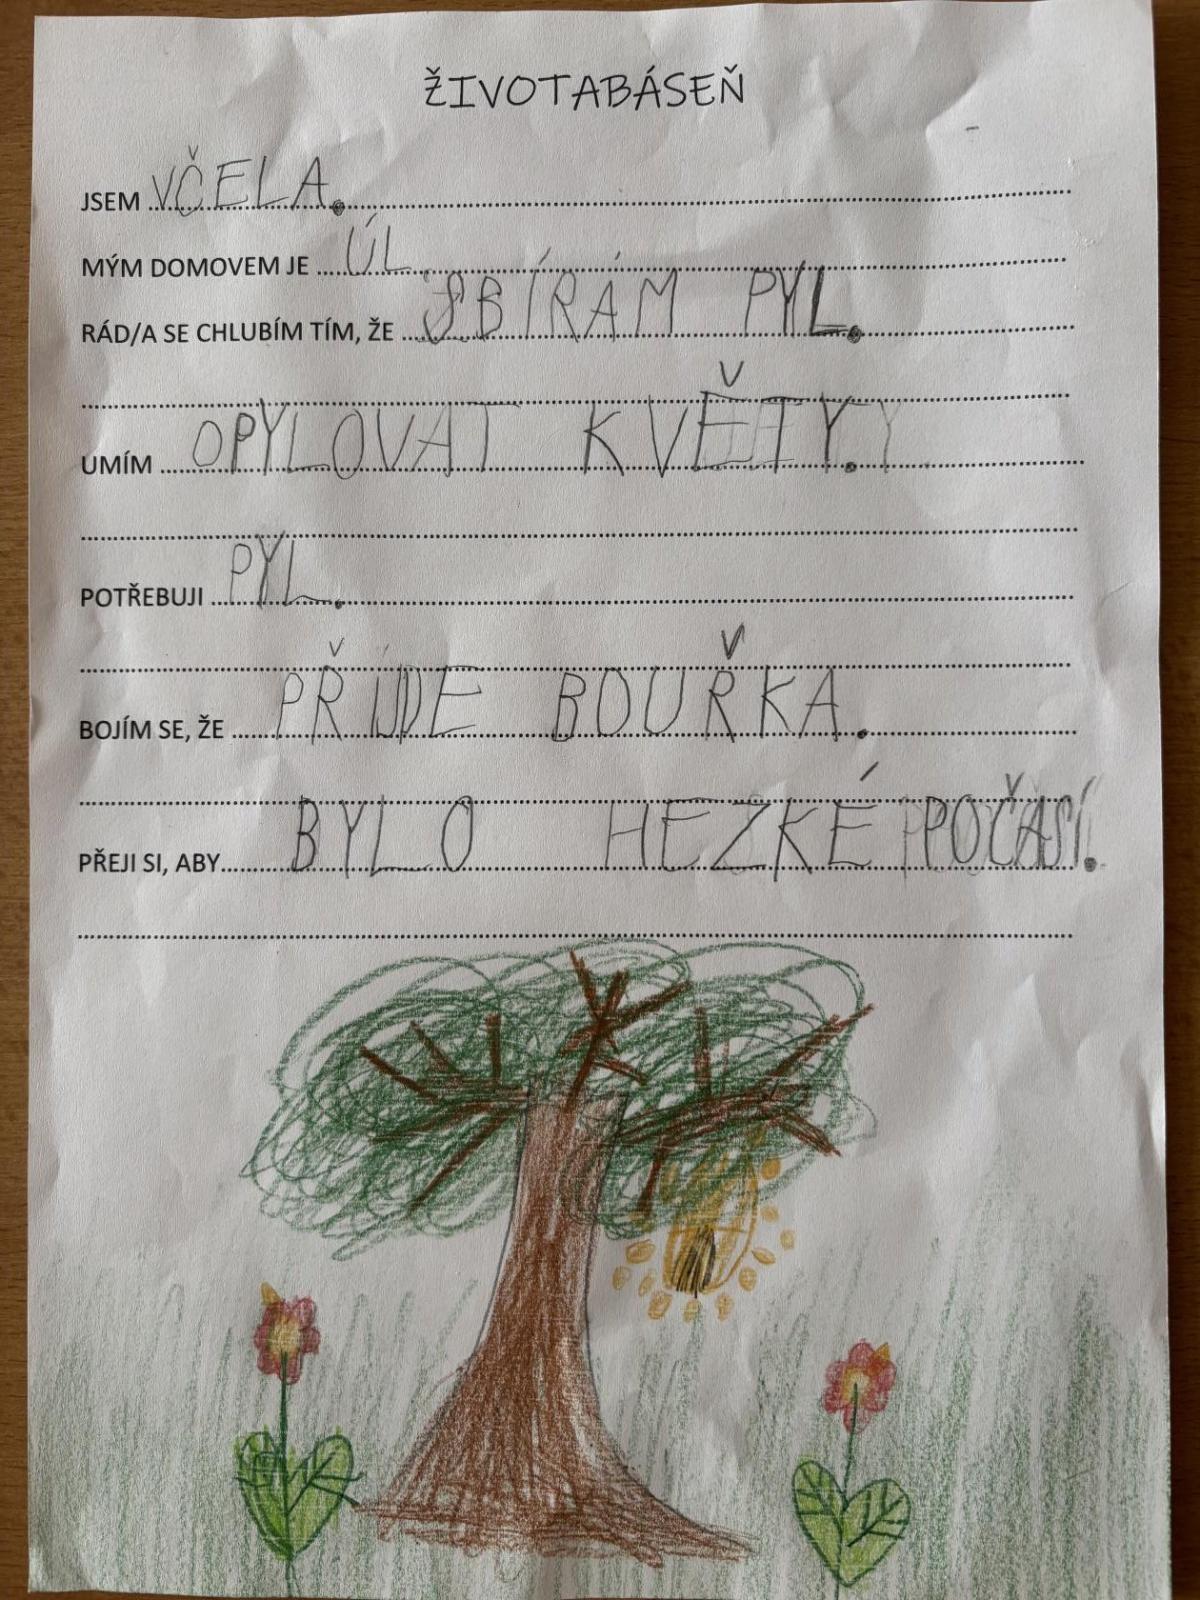 ŽIVOTABÁSEŇ
JSEM VČELA.
MÝM DOMOVEM JE ÚL
RÁD/A SE CHLUBÍM TÍM, ŽE SBÍRÁM PYL.
UMÍM OPYLOVAT KVĚTY.
POTŘEBUJI PYL.
BOJÍM SE, ŽE PŘIJDE BOUŘKA.
PŘEJI SI, ABY BYLO HEZKÉ POČASÍ.